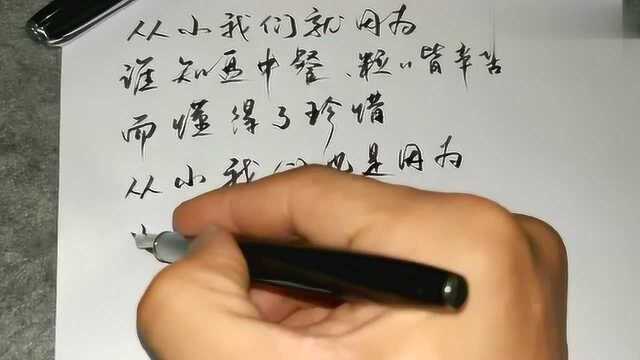 从小我们就因为
谁知盘中餐、粒〃皆辛苦
而懂得了珍惜
从小我们也是因为